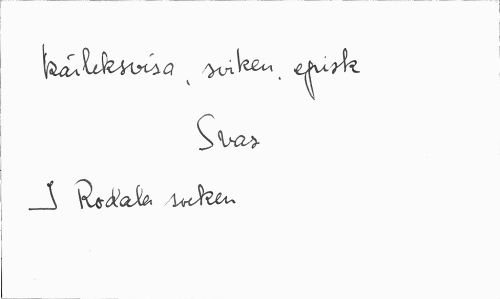 kärleksvisa, sviken, episk
Svar
I Rodala socken